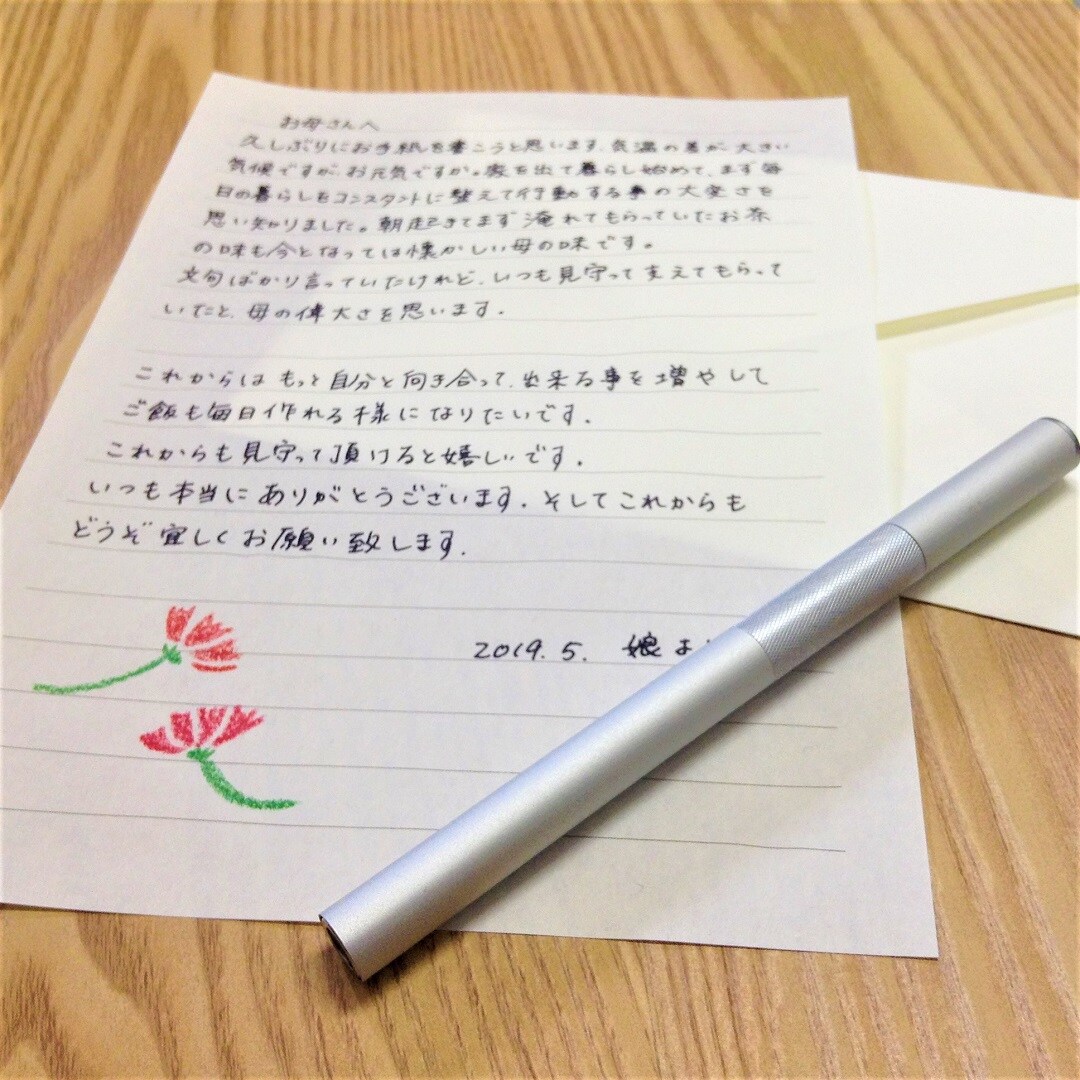 お母さんへ
久しぶりにお手紙を書こうと思います。気温の差が大きい
気候ですが、お元気ですか。家を出て暮らし始めて、まず毎
日の暮らしをコンスタントに整えて行動する事の大変さを
思い知りました。朝起きてまず淹れてもらっていたお茶
の味も今となっては懐かしい母の味です。
文句ばかり言っていたけれど、いつも見守って支えてもらって
いたと、母の偉大さを思います。
これからは もっと自分と向き合って、出来る事を増やして
ご飯も毎日作れる様になりたいです。
これからも見守って頂けると嬉しいです。
いつも本当にありがとうございます。そしてこれからも
どうぞ宜しくお願い致します。
2019.5. 娘よ